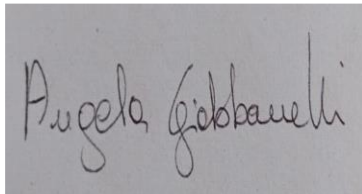 Angela Giobbanelli